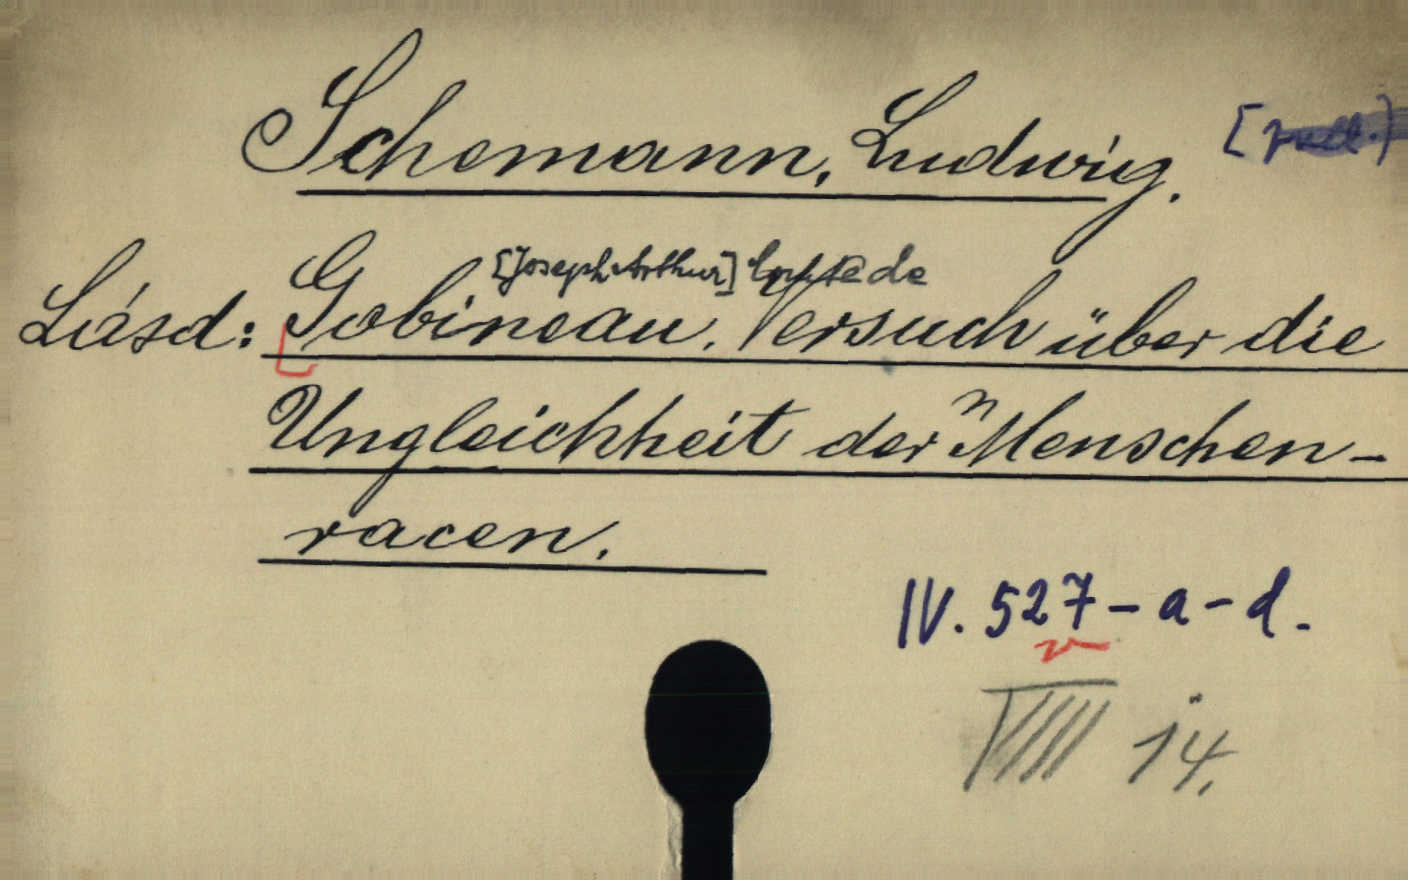 Schemann, Ludwig.
[Joseph Arthur] de
Lásd: Gobineau. Versuch über die
Ungleichheit der Menschen-
racen.
IV. 527-a-d.
VIII 14.